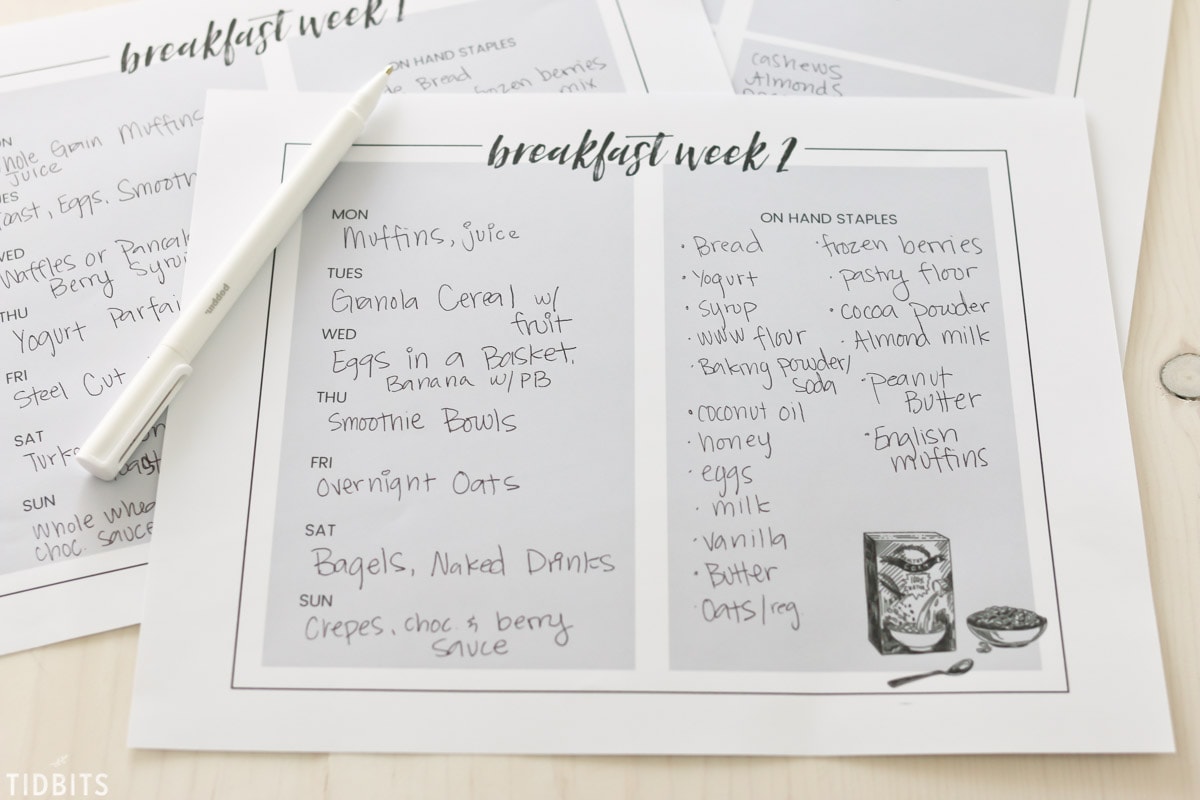 breakfast week 1
ON HAND STAPLES
Bread
frozen berries
mix
cashews
Almonds
Grain Muffins
juice
Eggs, Smooth
WED
Waffles or Pancak
Berry Syru
THU
Yogurt Parfai
FRI
Steel Cut
SAT
Turk
SUN
Whole whea
choc. sauce
poppin.
breakfast week 2
MON
Muffins, juice
TUES
Granola Cereal w/
fruit
WED
Eggs in a Basket,
Banana w/PB
THU
Smoothie Bowls
FRI
Overnight Oats
SAT
Bagels, Naked Drinks
SUN
Crepes, choc. & berry
sauce
ON HAND STAPLES
· Bread
· Yogurt
· syrup
· WWW flour
· Baking powder/
soda
· coconut oil
· honey
· eggs
· milk
· vanilla
· Butter
· Oats/reg.
· frozen berries
· pastry floor
· cocoa powder
· Almond milk
· Peanut
Butter
· English
muffins
TIDBITS